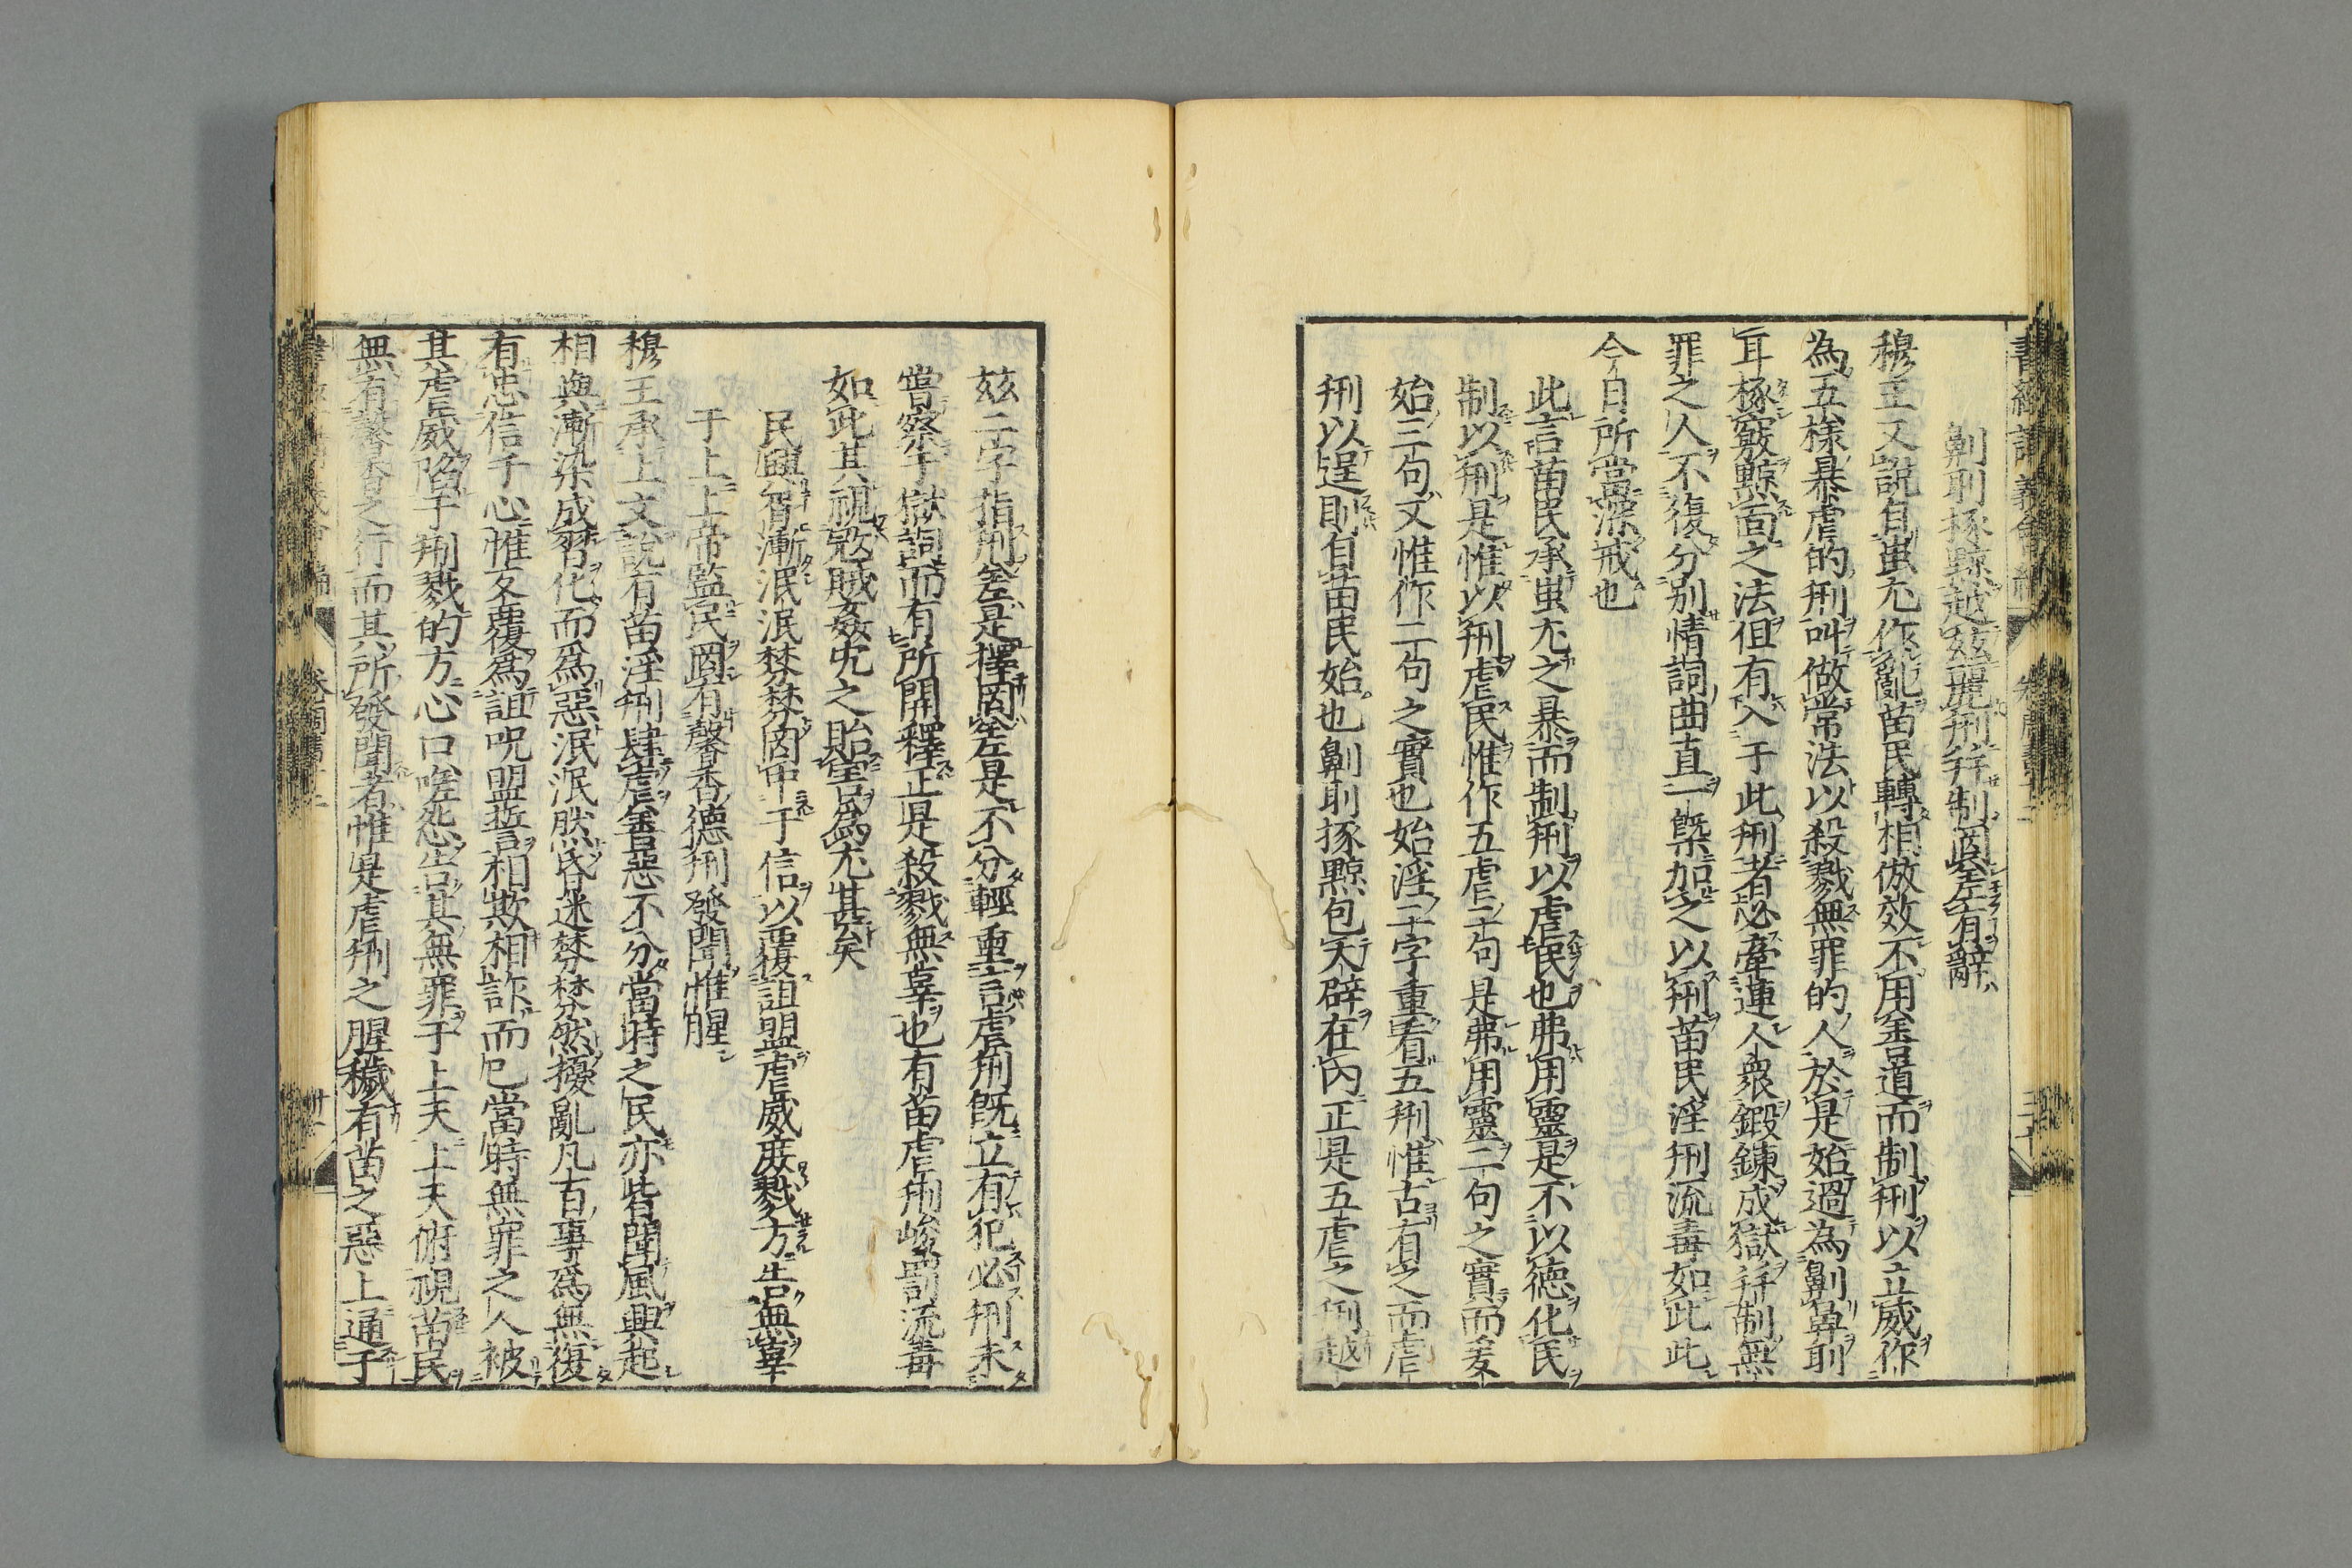 劓刵椓黥越茲麗刑幷制罔差有辭
穆王又説自蚩尤作亂苗民轉相倣效不用善道而制刑以立威作
為五樣暴虐的刑叫做常法以殺戮無罪的人於是始過為劓鼻刵
耳椓竅黥面之法但有入于此刑者必牽連人衆鍛錬成獄幷制無
罪之人不復分别情詞曲直一槩加之以刑苗民淫刑流毒如此此
今日所當深戒也
此言苗民承蚩尤之暴而制刑以虐民也弗用靈是不以徳化民
制以刑是惟以刑虐民惟作五虐二句是弗用靈二句之實而爰
始三句又惟作二句之實也始淫二字重看五刑惟古有之而虐
刑以逞則自苗民始也劓刵椓黥包大辟在内正是五虐之刑越
茲二字指刑差是擇罔差是不分輕重言虐刑既立有犯必刑未
嘗察于獄詞而有所開釋正是殺戮無辜也有苗虐刑峻罰流毒
如此其視寇賊姦宄之貽害爲尤甚矣
民興胥漸泯泯棼棼罔中于信以覆詛盟虐威庶戮方告無辜
于上上帝監民罔有馨香德刑發聞惟腥
穆王承上文説有苗淫刑肆虐善惡不分當時之民亦皆聞風興起
相與漸染成習化而爲惡泯泯然昏迷棼棼然擾亂凡百事爲無復
有忠信于心惟反覆爲詛呪盟誓相欺相詐而已當時無罪之人被
其虐威陷于刑戮的方心口嗟怨告其無罪于上天上天俯視苗民
無有馨香之行而其所發聞者惟是虐刑之腥穢有苗之惡上通于